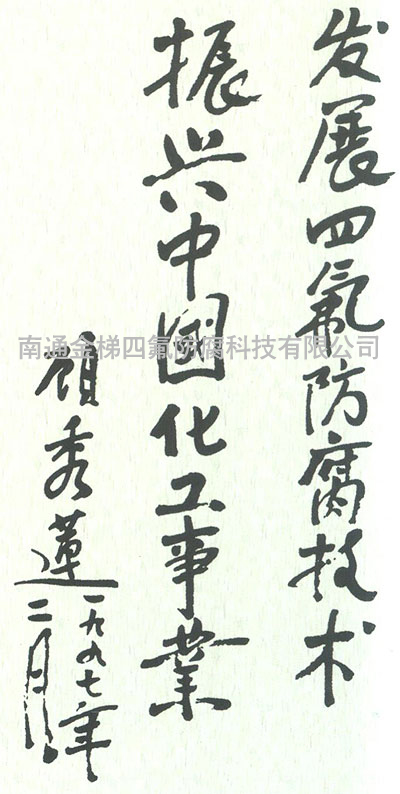 发展四氟防腐技术
振兴中国化工事業
顾秀莲
一九九七年
二月
南通金梯四氟防腐科技有限公司